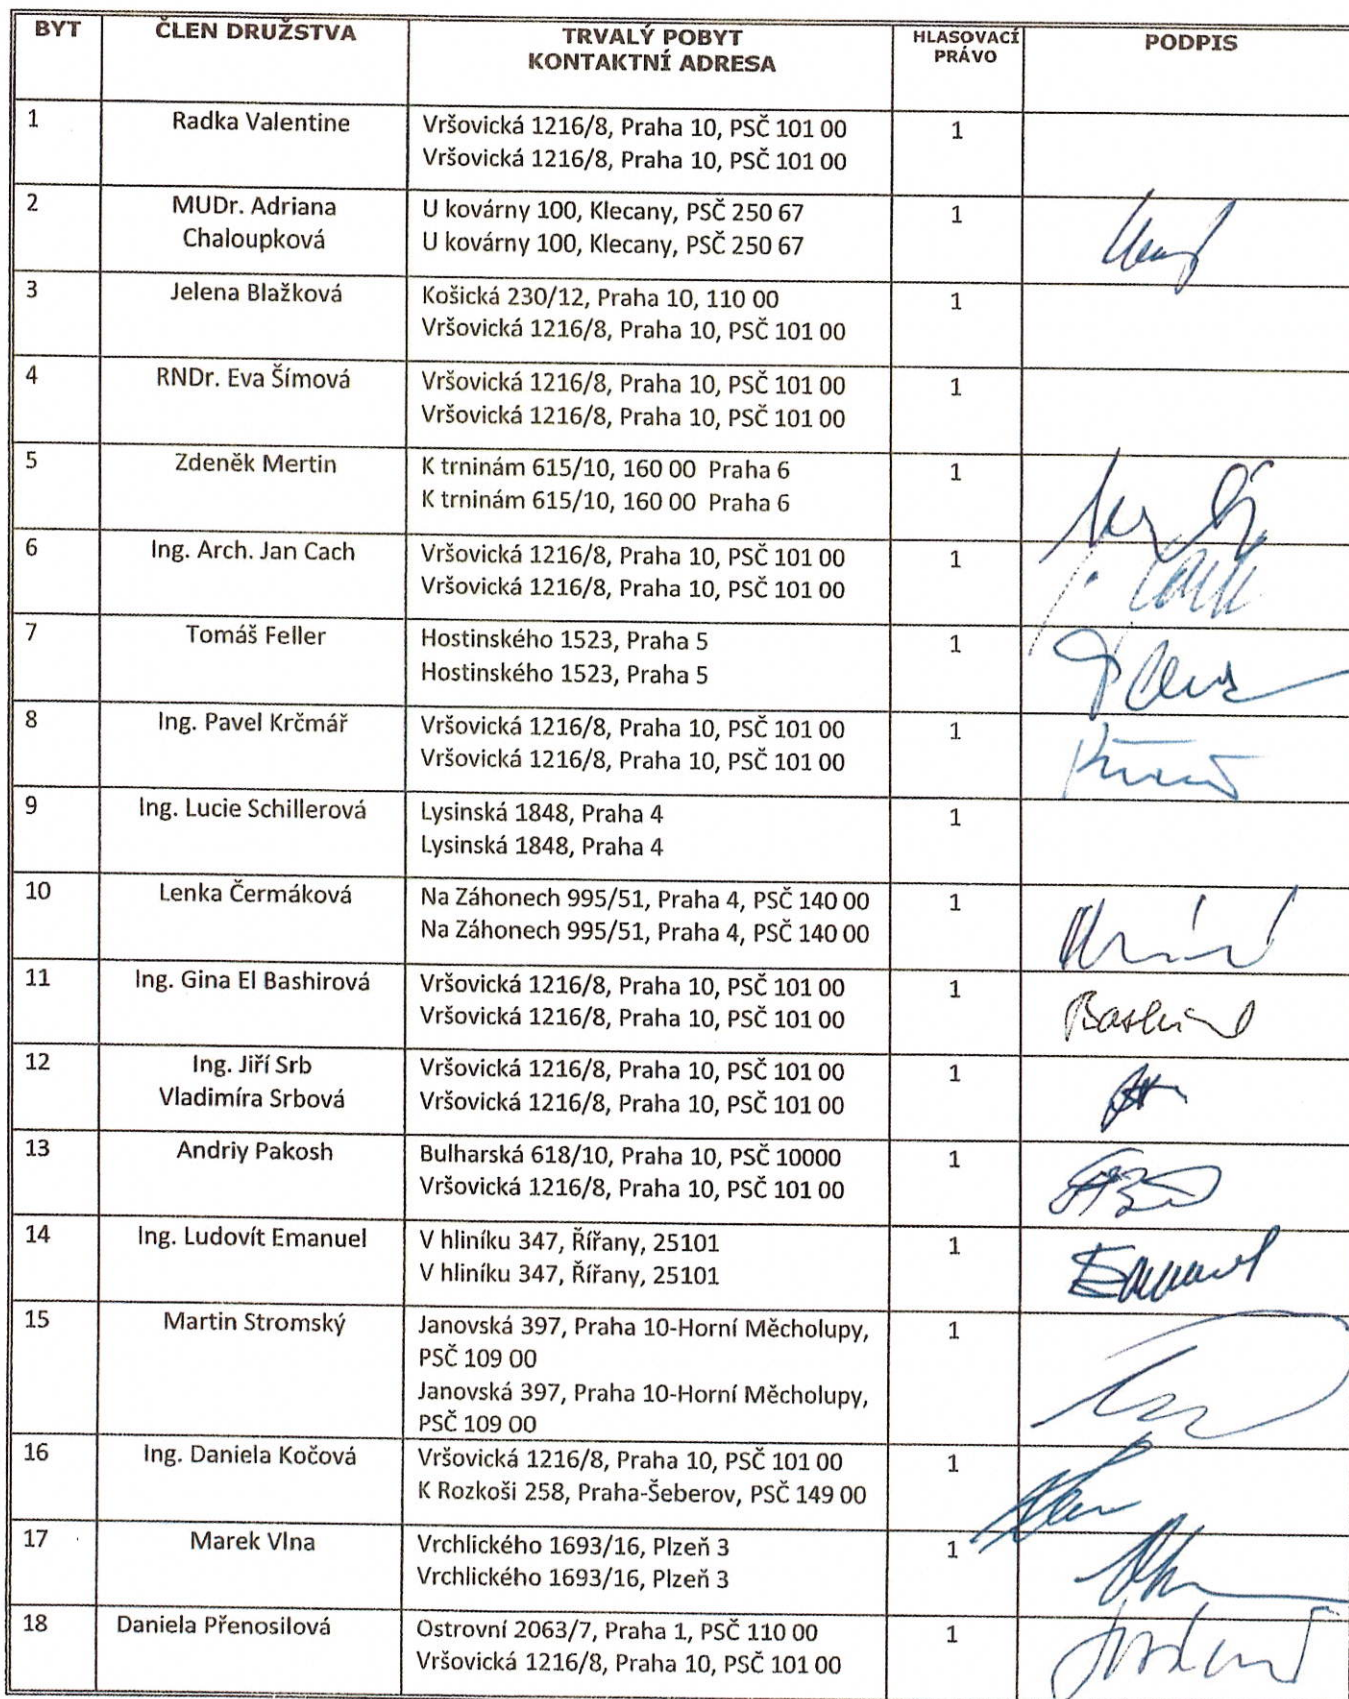 BYT ČLEN DRUŽSTVA TRVALÝ POBYT HLASOVACÍ PODPIS
KONTAKTNÍ ADRESA PRÁVO
1 Radka Valentine Vršovická 1216/8, Praha 10, PSČ 101 00 1
Vršovická 1216/8, Praha 10, PSČ 101 00
2 MUDr. Adriana U kovárny 100, Klecany, PSČ 250 67 1
Chaloupková U kovárny 100, Klecany, PSČ 250 67
3 Jelena Blažková Košická 230/12, Praha 10, 110 00 1
Vršovická 1216/8, Praha 10, PSČ 101 00
4 RNDr. Eva Šímová Vršovická 1216/8, Praha 10, PSČ 101 00 1
Vršovická 1216/8, Praha 10, PSČ 101 00
5 Zdeněk Mertin K trninám 615/10, 160 00 Praha 6 1
K trninám 615/10, 160 00 Praha 6
6 Ing. Arch. Jan Cach Vršovická 1216/8, Praha 10, PSČ 101 00 1
Vršovická 1216/8, Praha 10, PSČ 101 00
7 Tomáš Feller Hostinského 1523, Praha 5 1
Hostinského 1523, Praha 5
8 Ing. Pavel Krčmář Vršovická 1216/8, Praha 10, PSČ 101 00 1
Vršovická 1216/8, Praha 10, PSČ 101 00
9 Ing. Lucie Schillerová Lysinská 1848, Praha 4 1
Lysinská 1848, Praha 4
10 Lenka Čermáková Na Záhonech 995/51, Praha 4, PSČ 140 00 1
Na Záhonech 995/51, Praha 4, PSČ 140 00
11 Ing. Gina El Bashirová Vršovická 1216/8, Praha 10, PSČ 101 00 1
Vršovická 1216/8, Praha 10, PSČ 101 00
12 Ing. Jiří Srb Vršovická 1216/8, Praha 10, PSČ 101 00 1
Vladimíra Srbová Vršovická 1216/8, Praha 10, PSČ 101 00
13 Andriy Pakosh Bulharská 618/10, Praha 10, PSČ 10000 1
Vršovická 1216/8, Praha 10, PSČ 101 00
14 Ing. Ludovít Emanuel V hliníku 347, Řířany, 25101 1 Emanuel
V hliníku 347, Řířany, 25101
15 Martin Stromský Janovská 397, Praha 10-Horní Měcholupy, 1
PSČ 109 00
Janovská 397, Praha 10-Horní Měcholupy,
PSČ 109 00
16 Ing. Daniela Kočová Vršovická 1216/8, Praha 10, PSČ 101 00 1
K Rozkoši 258, Praha-Šeberov, PSČ 149 00
17 Marek Vlna Vrchlického 1693/16, Plzeň 3 1
Vrchlického 1693/16, Plzeň 3
18 Daniela Přenosilová Ostrovní 2063/7, Praha 1, PSČ 110 00 1
Vršovická 1216/8, Praha 10, PSČ 101 00